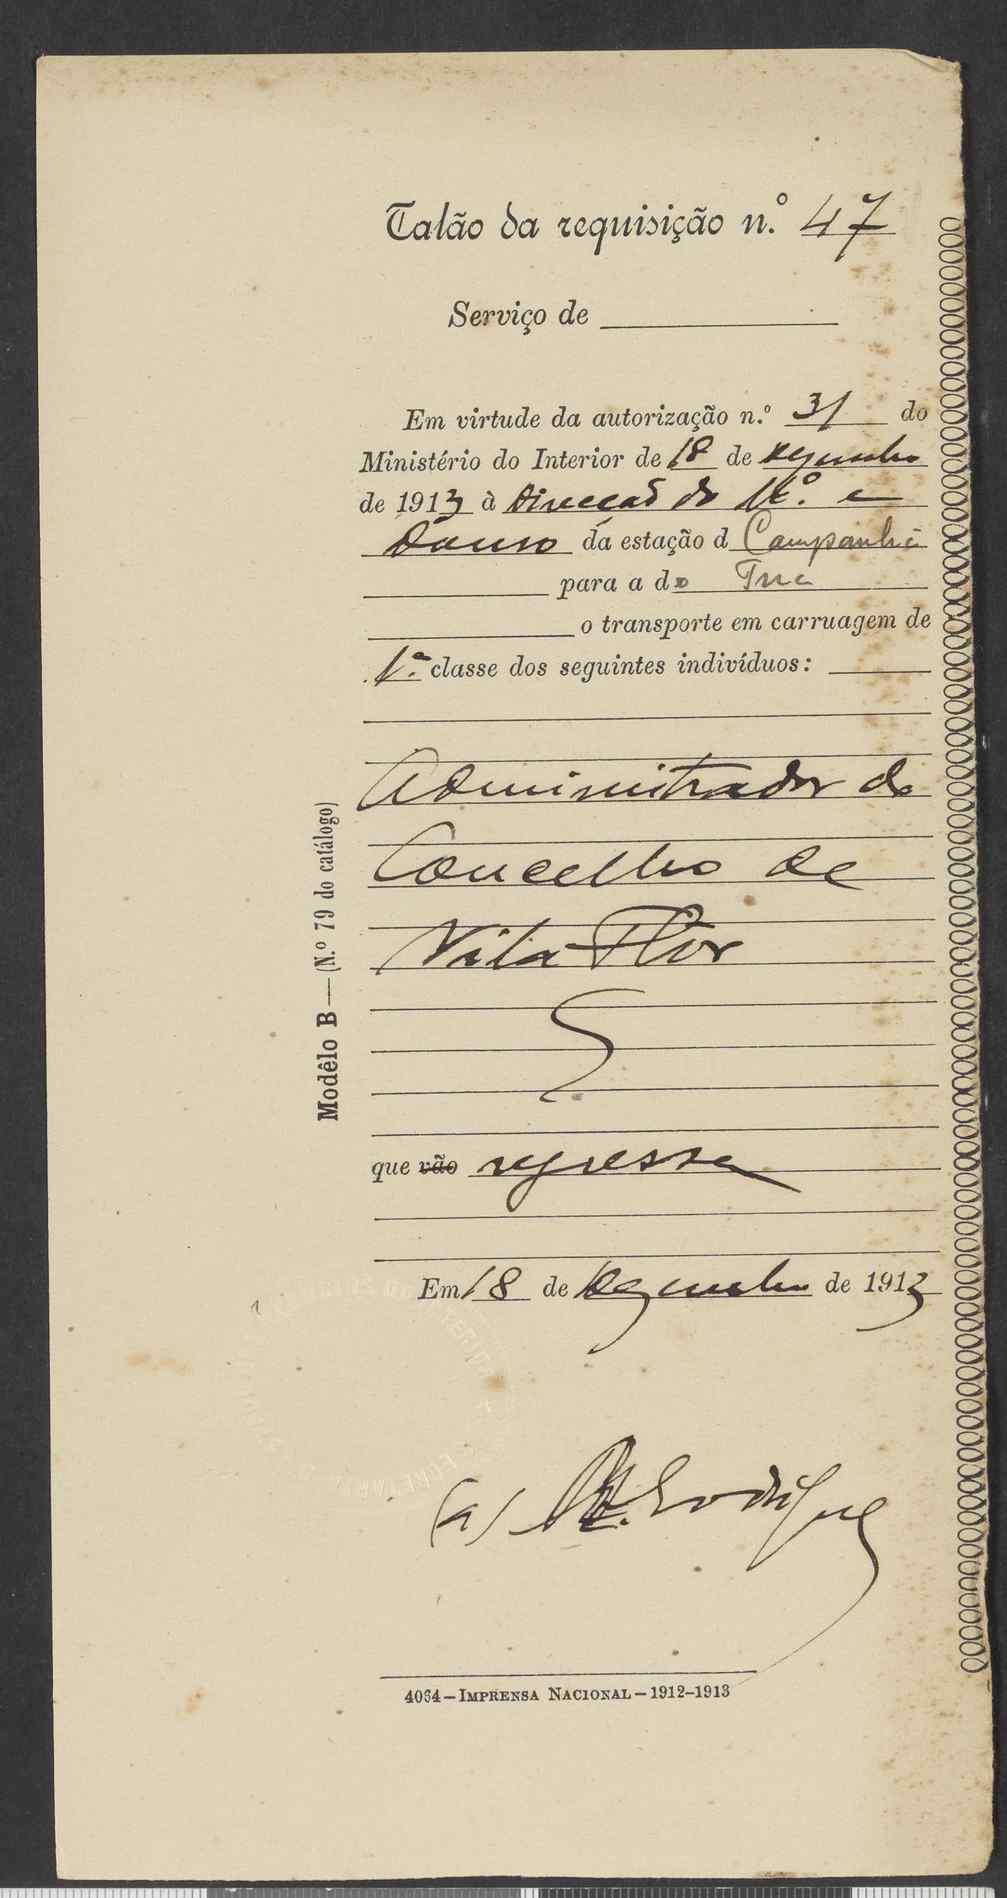 Talão da requisição n.º 47
Serviço de
Em virtude da autorização n.º 31 do
Ministério do Interior de 18 de Dezembro
de 1913 à Direcção do M.º e
Douro da estação d Campanhã
para a do Tua
o transporte em carruagem de
1.ª classe dos seguintes indivíduos:
Administrador do
Concelho de
Vila Flor
que vão regressa
Em 18 de Dezembro de 1913
(a) Rodrigues
4064—IMPRENSA NACIONAL—1912-1913
Modêlo B—(N.º 79 do catálogo)